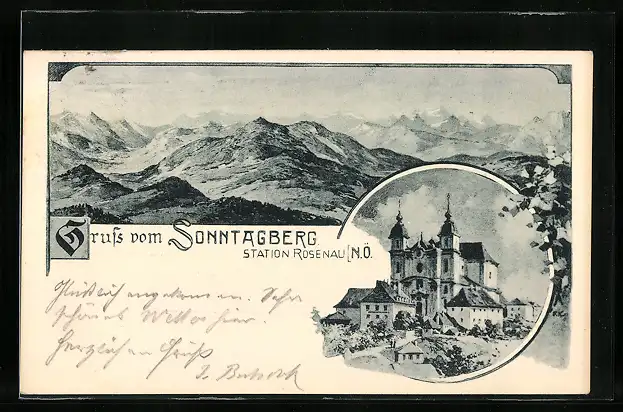 Gruß vom Sonntagberg.
STATION ROSENAU N.Ö.
Glücklich angekommen. Sehr
schönes Wetter hier.
Herzlichen Gruß